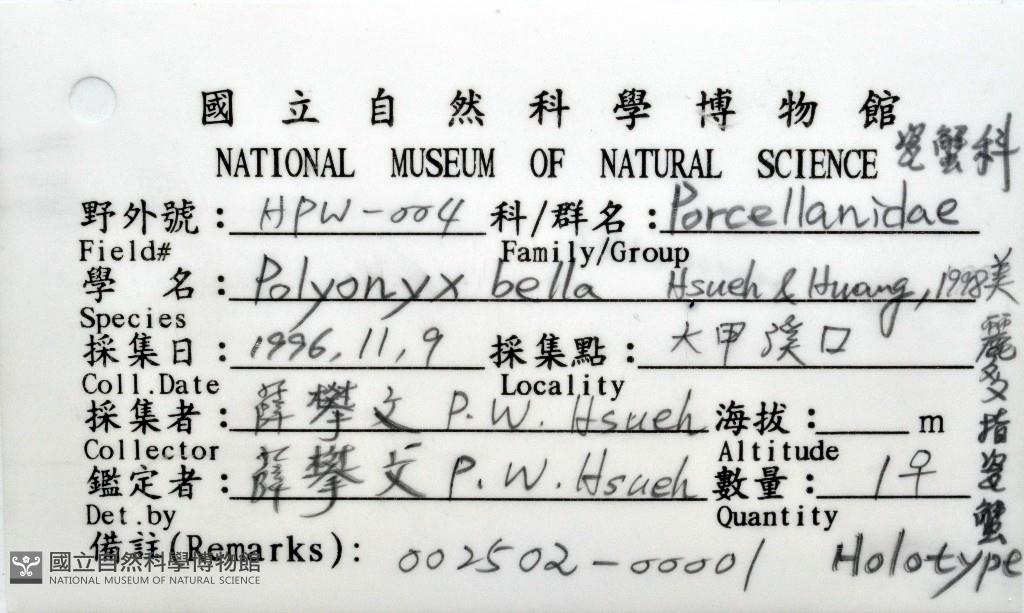 國立自然科學博物館
NATIONAL MUSEUM OF NATURAL SCIENCE 瓷蟹科
野外號: HPW-004 科/群名: Porcellanidae
Field# Family/Group
學 名: Polyonyx bella Hsueh & Huang, 1998 美麗多指瓷蟹
Species
採集日: 1996, 11, 9 採集點: 大甲溪口
Coll.Date Locality
採集者: 薛攀文 P.W. Hsueh 海拔: m
Collector Altitude
鑑定者: 薛攀文 P.W. Hsueh 數量: 1♀
Det.by Quantity
備註(Remarks): 002502-00001 Holotype
國立自然科學博物館
NATIONAL MUSEUM OF NATURAL SCIENCE